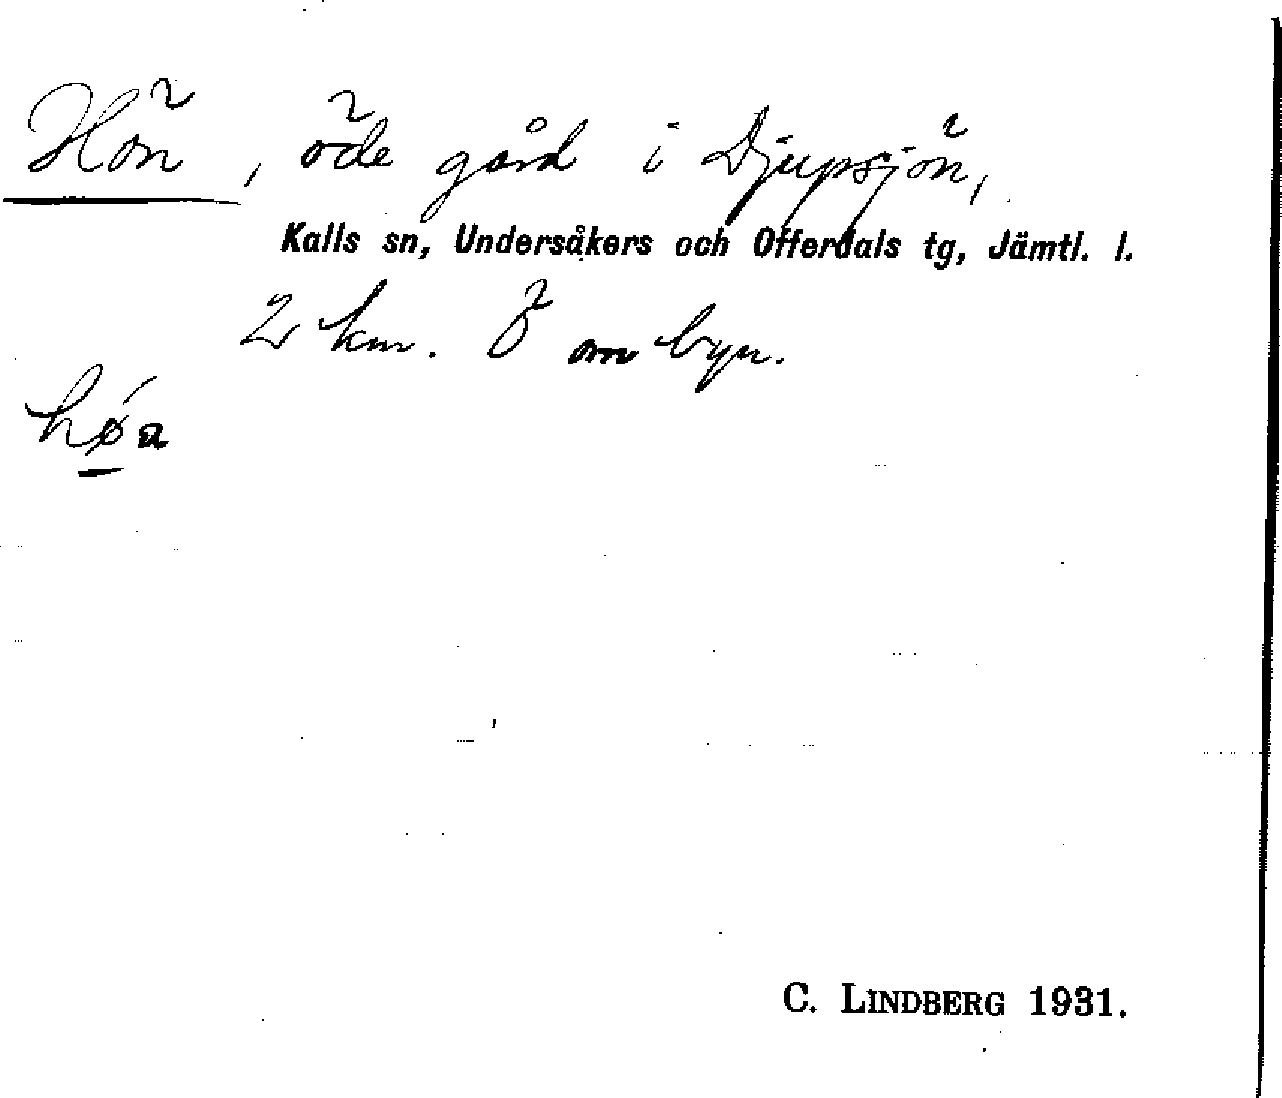 Hön, öde gård i Djupsjön,
Kalls sn, Undersåkers och Offerdals tg, Jämtl. l.
2 km. Ö om byn.
hǿa
C. LINDBERG 1931.